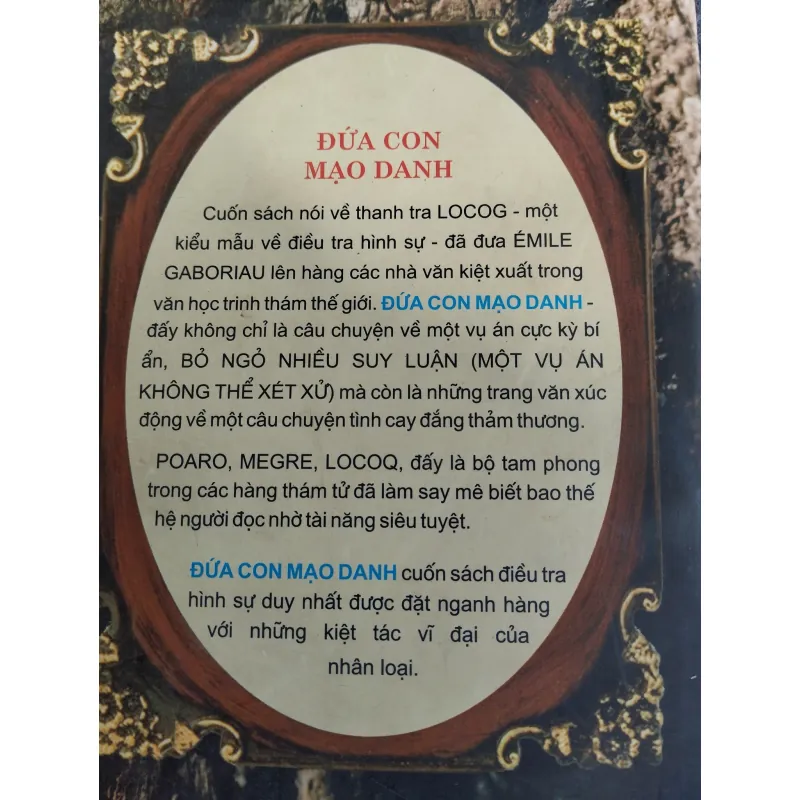 ĐỨA CON
MẠO DANH
Cuốn sách nói về thanh tra LOCOG - một
kiểu mẫu về điều tra hình sự - đã đưa ÉMILE
GABORIAU lên hàng các nhà văn kiệt xuất trong
văn học trinh thám thế giới. ĐỨA CON MẠO DANH -
đấy không chỉ là câu chuyện về một vụ án cực kỳ bí
ẩn, BỎ NGỎ NHIỀU SUY LUẬN (MỘT VỤ ÁN
KHÔNG THỂ XÉT XỬ) mà còn là những trang văn xúc
động về một câu chuyện tình cay đắng thảm thương.
POARO, MEGRE, LOCOQ, đấy là bộ tam phong
trong các hàng thám tử đã làm say mê biết bao thế
hệ người đọc nhờ tài năng siêu tuyệt.
ĐỨA CON MẠO DANH cuốn sách điều tra
hình sự duy nhất được đặt nganh hàng
với những kiệt tác vĩ đại của
nhân loại.